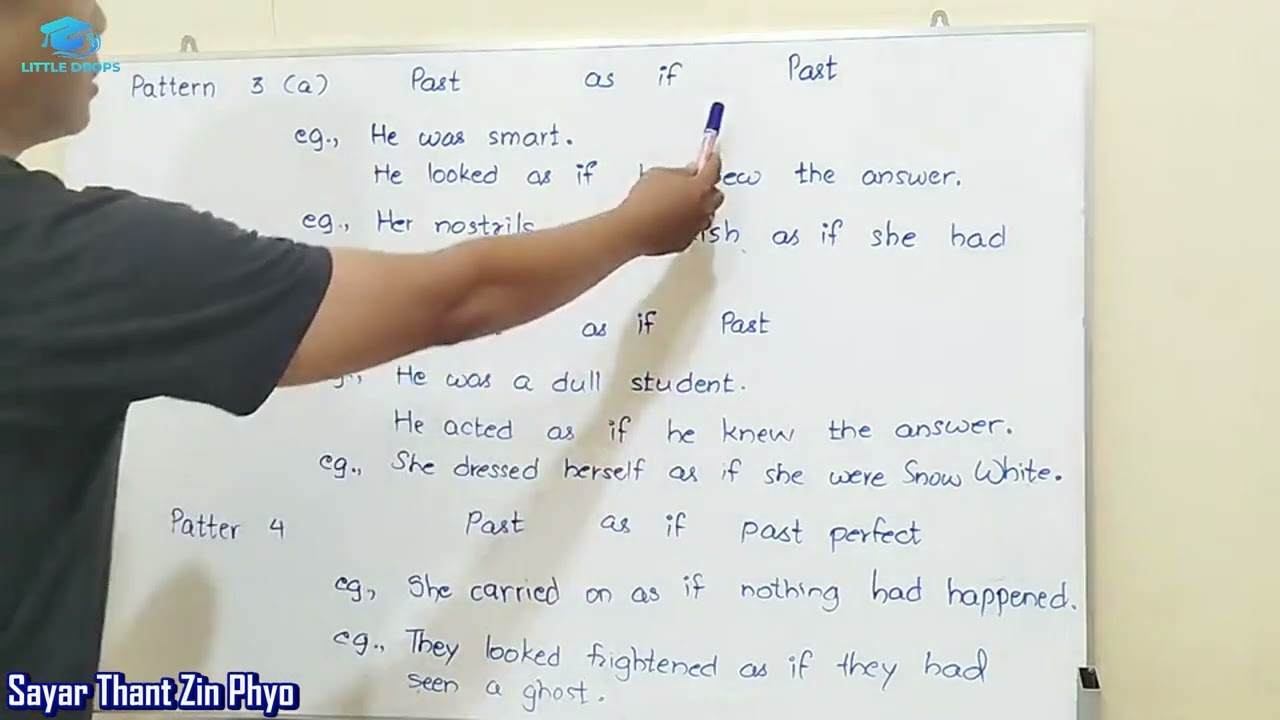 LITTLE DROPS
Pattern 3 (a) Past as if Past
eg., He was smart.
He looked as if the answer.
eg., Her nostrils as if she had
as if Past
He was a dull student.
He acted as if he knew the answer.
eg., She dressed herself as if she were Snow White.
Patter 4 Past as if past perfect
eg, She carried on as if nothing had happened.
eg., They looked frightened as if they had
seen a ghost.
Sayar Thant Zin Phyo